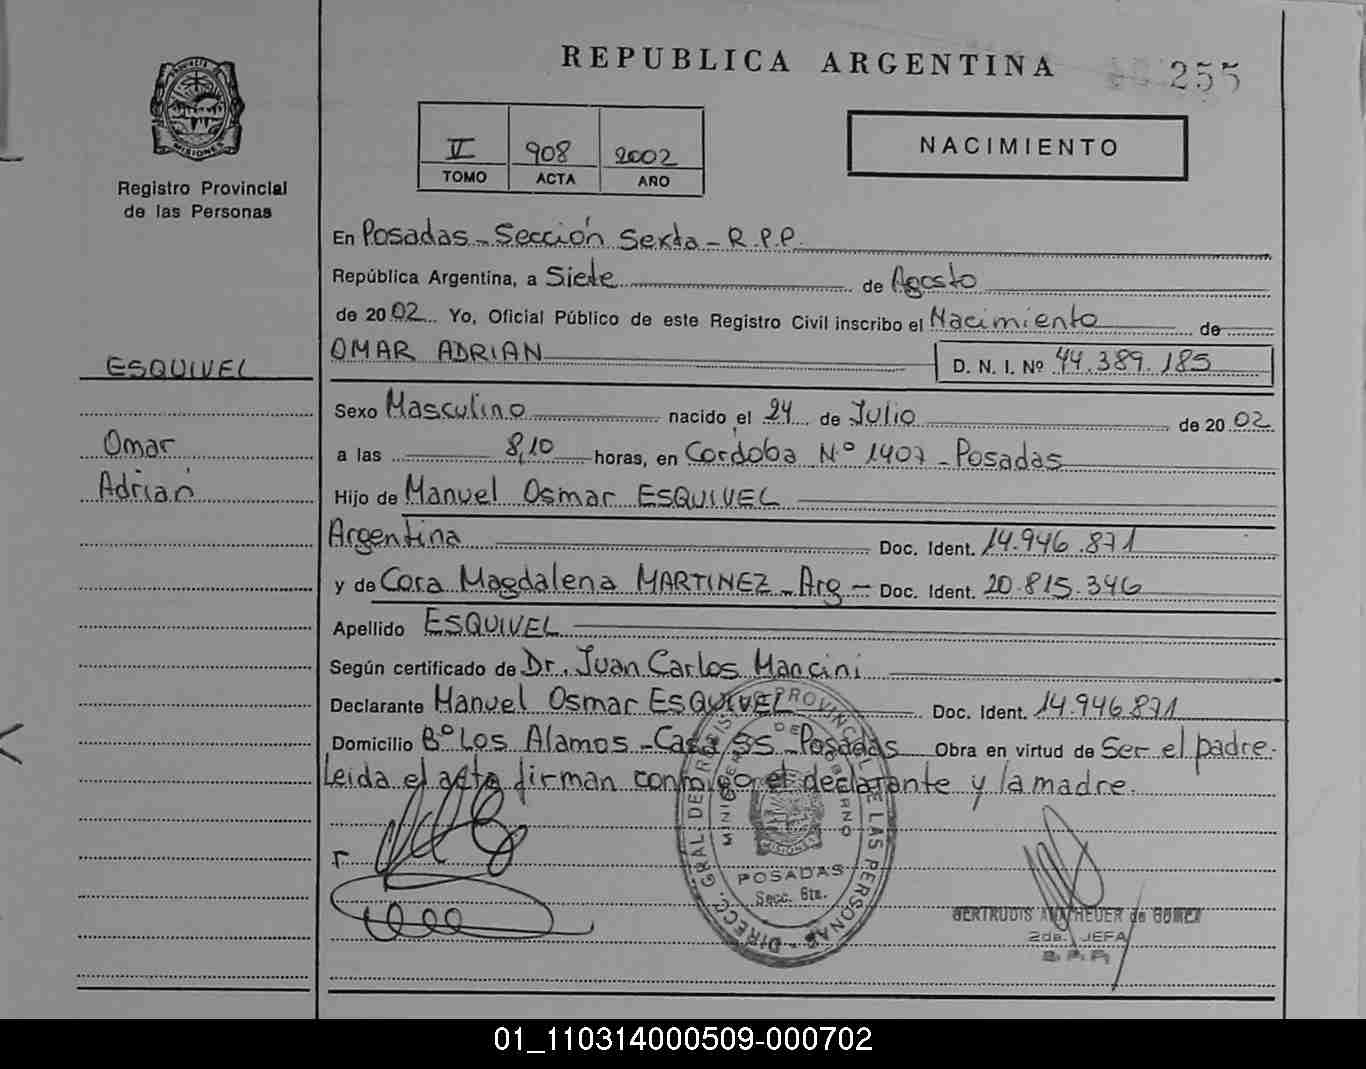 REPUBLICA ARGENTINA
255
PROVINCIA DE MISIONES
Registro Provincial
de las Personas
V 908 2002
TOMO ACTA AÑO
NACIMIENTO
En Posadas - Sección Sexta - R.P.P.
República Argentina, a Siete de Agosto
de 2002 Yo, Oficial Público de este Registro Civil inscribo el Nacimiento de
OMAR ADRIAN D. N. I. Nº 44.389.185
ESQUIVEL
Omar
Adrián
Sexo Masculino nacido el 24 de Julio de 2002
a las 8,10 horas, en Cordoba Nº 1407 - Posadas
Hijo de Manuel Osmar ESQUIVEL
Argentina Doc. Ident. 14.946.871
y de Cora Magdalena MARTINEZ - Arg - Doc. Ident. 20.815.346
Apellido ESQUIVEL
Según certificado de Dr. Juan Carlos Mancini
Declarante Manuel Osmar ESQUIVEL Doc. Ident. 14.946.871
Domicilio Bº Los Alamos - Casa 55 - Posadas Obra en virtud de Ser el padre.
Leida el acta firman conmigo el declarante y la madre.
DIRECC. GRAL. DEL REGISTRO PROVINCIAL DE LAS PERSONAS
MINISTERIO DE GOBIERNO
MISIONES
POSADAS
Secc. 6ta.
GERTRUDIS de GOMEZ
2da. JEFA
R.P.P.
01_110314000509-000702